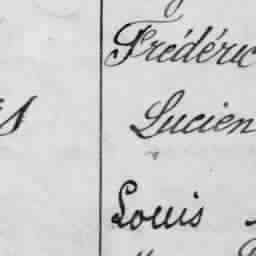 Frédéric
Lucien
Louis